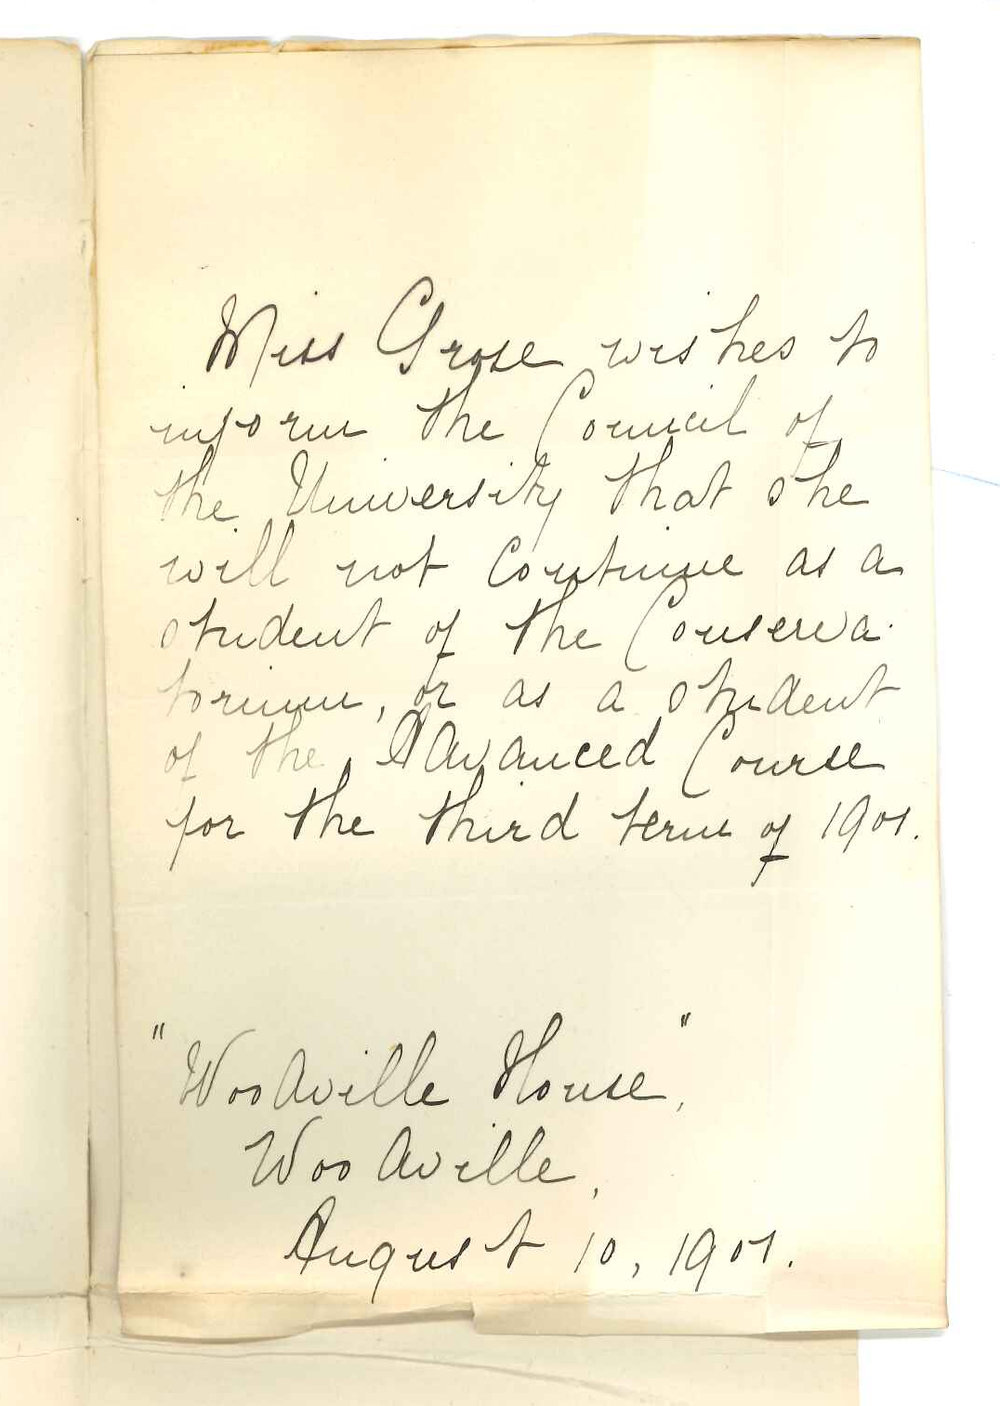 Miss Grose wishes to
inform the Council of
the University that she
will not continue as a
student of the Conserva-
torium, or as a student
of the Advanced Course
for the third term of 1901.
"Woodville House",
Woodville,
August 10, 1901.